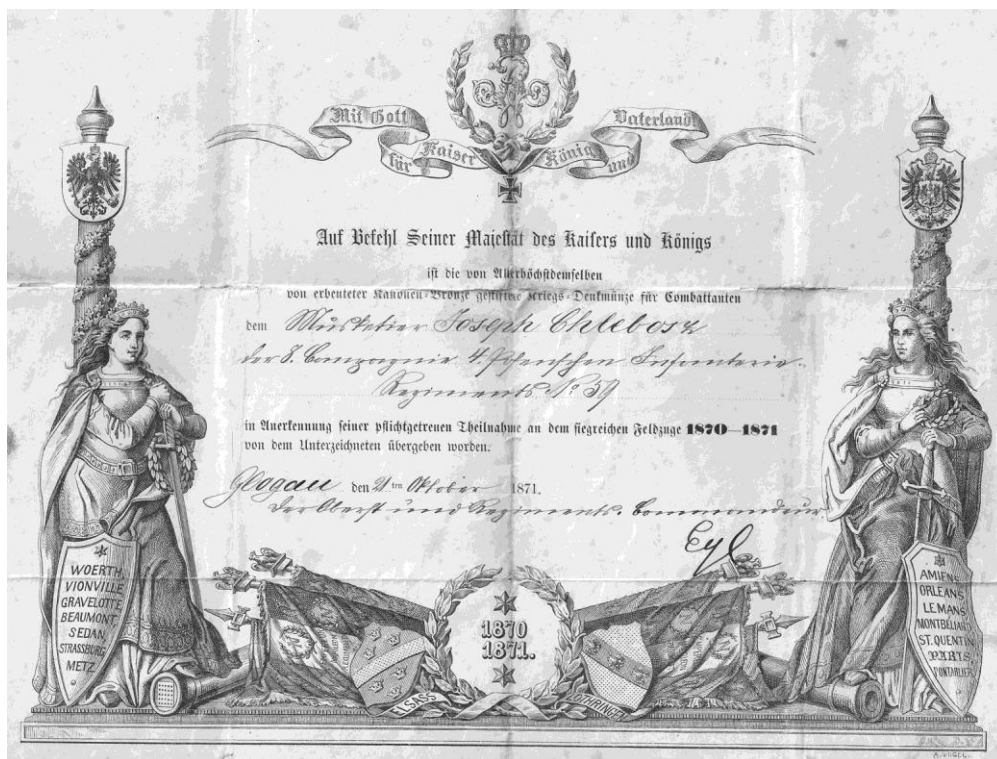 Mit Gott
für Kaiser König und
Vaterland
Auf Befehl Seiner Majestät des Kaisers und Königs
ist die von Allerhöchstdemselben
von erbeuteter Kanonen-Bronze gestiftete Kriegs-Denkmünze für Combattanten
dem Musketier Joseph
der 8. Compagnie 4. Posenschen Infanterie-
Regiments No 59
in Anerkennung seiner pflichtgetreuen Theilnahme an dem siegreichen Feldzuge 1870—1871
von dem Unterzeichneten übergeben worden.
Glogau den 21ten Oktober 1871.
Der Oberst und Regiments-Commandeur
Eyl
WOERTH
VIONVILLE
GRAVELOTTE
BEAUMONT
SEDAN
STRASSBURG
METZ
1870
1871.
ELSASS
LOTHRINGEN
AMIENS
ORLEANS
LE MANS
MONTBELIARD
ST. QUENTIN
PARIS
PONTARLIER
A. VOGEL.